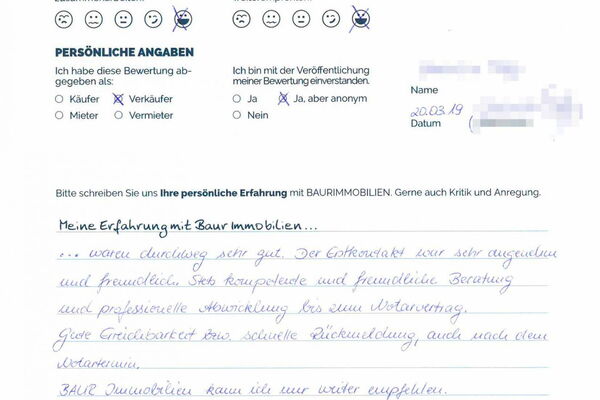 PERSÖNLICHE ANGABEN
Ich habe diese Bewertung ab-
gegeben als:
Käufer Verkäufer
Mieter Vermieter
Ich bin mit der Veröffentlichung
meiner Bewertung einverstanden.
Ja Ja, aber anonym
Nein
Name
20.03.19
Datum
Bitte schreiben Sie uns Ihre persönliche Erfahrung mit BAURIMMOBILIEN. Gerne auch Kritik und Anregung.
Meine Erfahrung mit Baur Immobilien...
... waren durchweg sehr gut. Der Erstkontakt war sehr angenehm
und freundlich. Stets kompetente und freundliche Beratung
und professionelle Abwicklung bis zum Notarvertrag.
Gute Erreichbarkeit bzw. schnelle Rückmeldung, auch nach dem
Notartermin.
BAUR Immobilien kann ich nur weiter empfehlen.